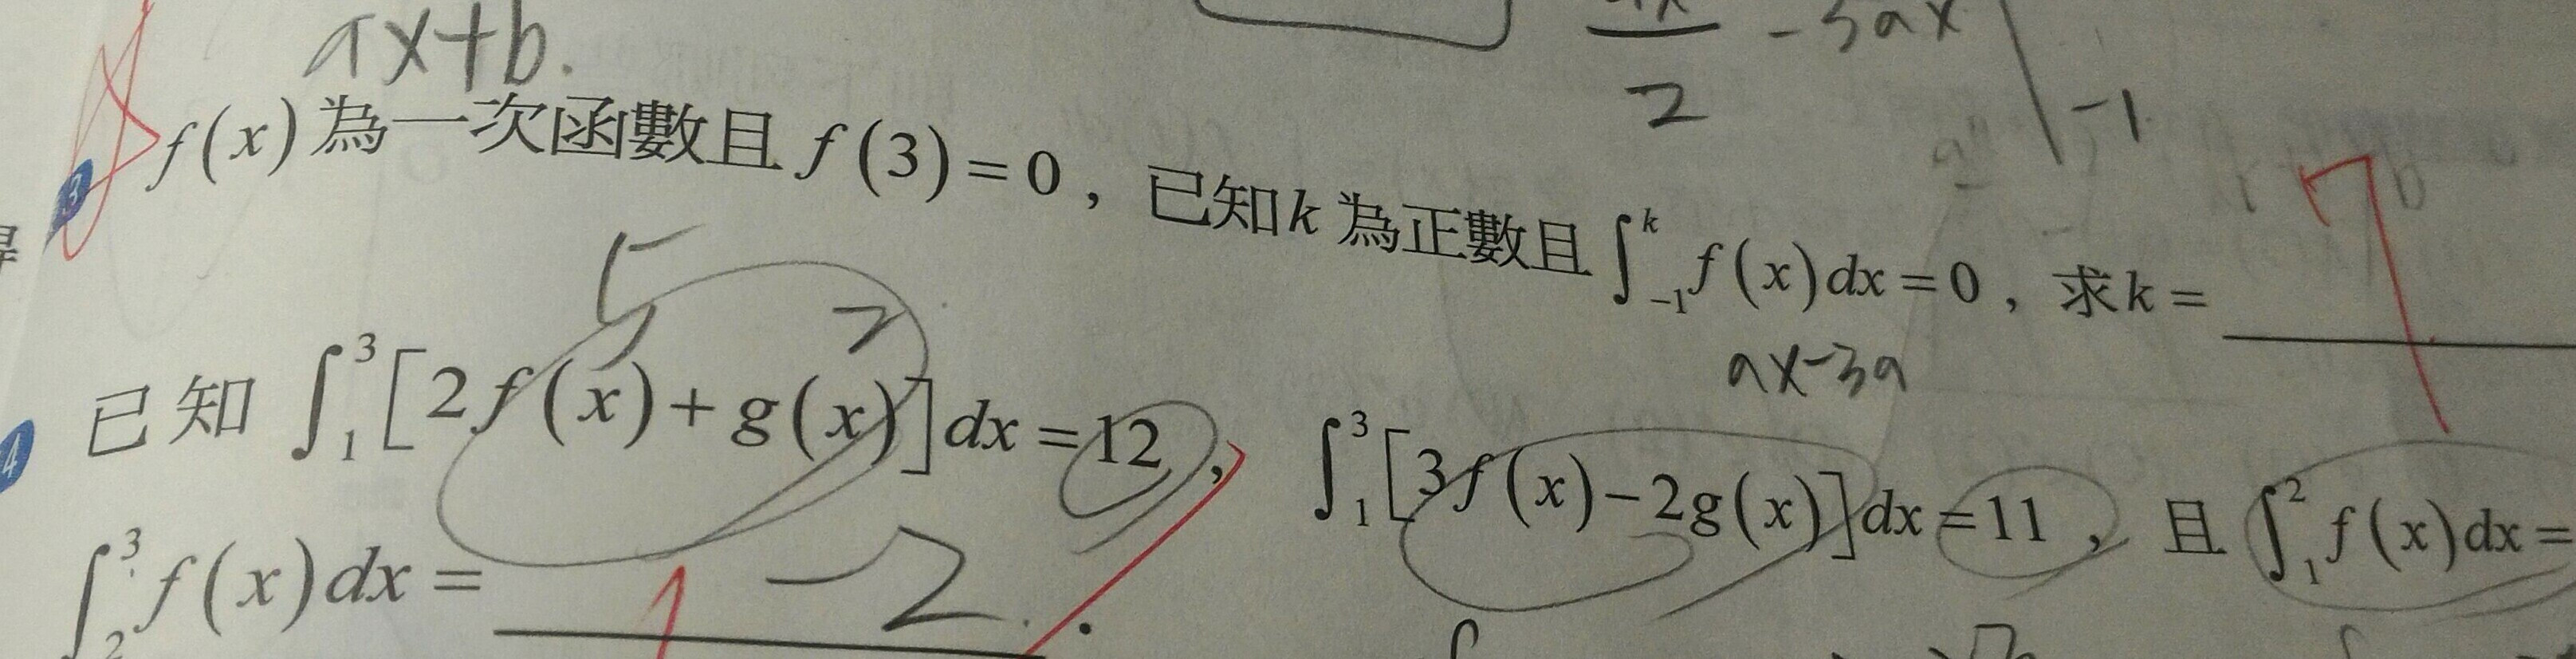 ax+b.
-3ax
2
-1
3 f(x)為一次函數且f(3)=0，已知k為正數且∫_{-1}^{k} f(x)dx=0，求k= 7
ax-3a
5 2
4 已知 ∫_{1}^{3}[2f(x)+g(x)]dx=12，∫_{1}^{3}[3f(x)-2g(x)]dx=11，且∫_{1}^{2} f(x)dx=
∫_{2}^{3} f(x)dx= -2.